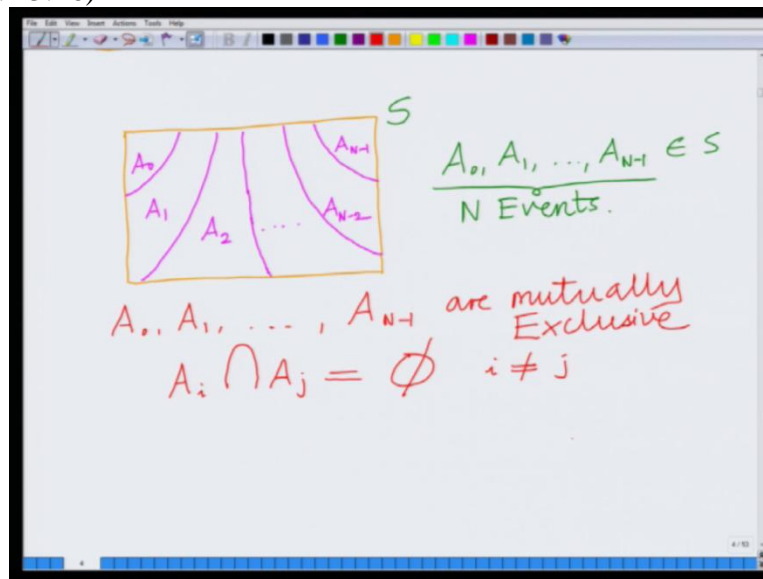 File Edit View Insert Actions Tools Help
B I
S
A₀ A₁ A₂ .... A_{N-2} A_{N-1}
A₀, A₁, ..., A_{N-1} ∈ S
N Events.
A₀, A₁, ...., A_{N-1} are mutually
Exclusive
A_i ∩ A_j = ∅ i ≠ j
4